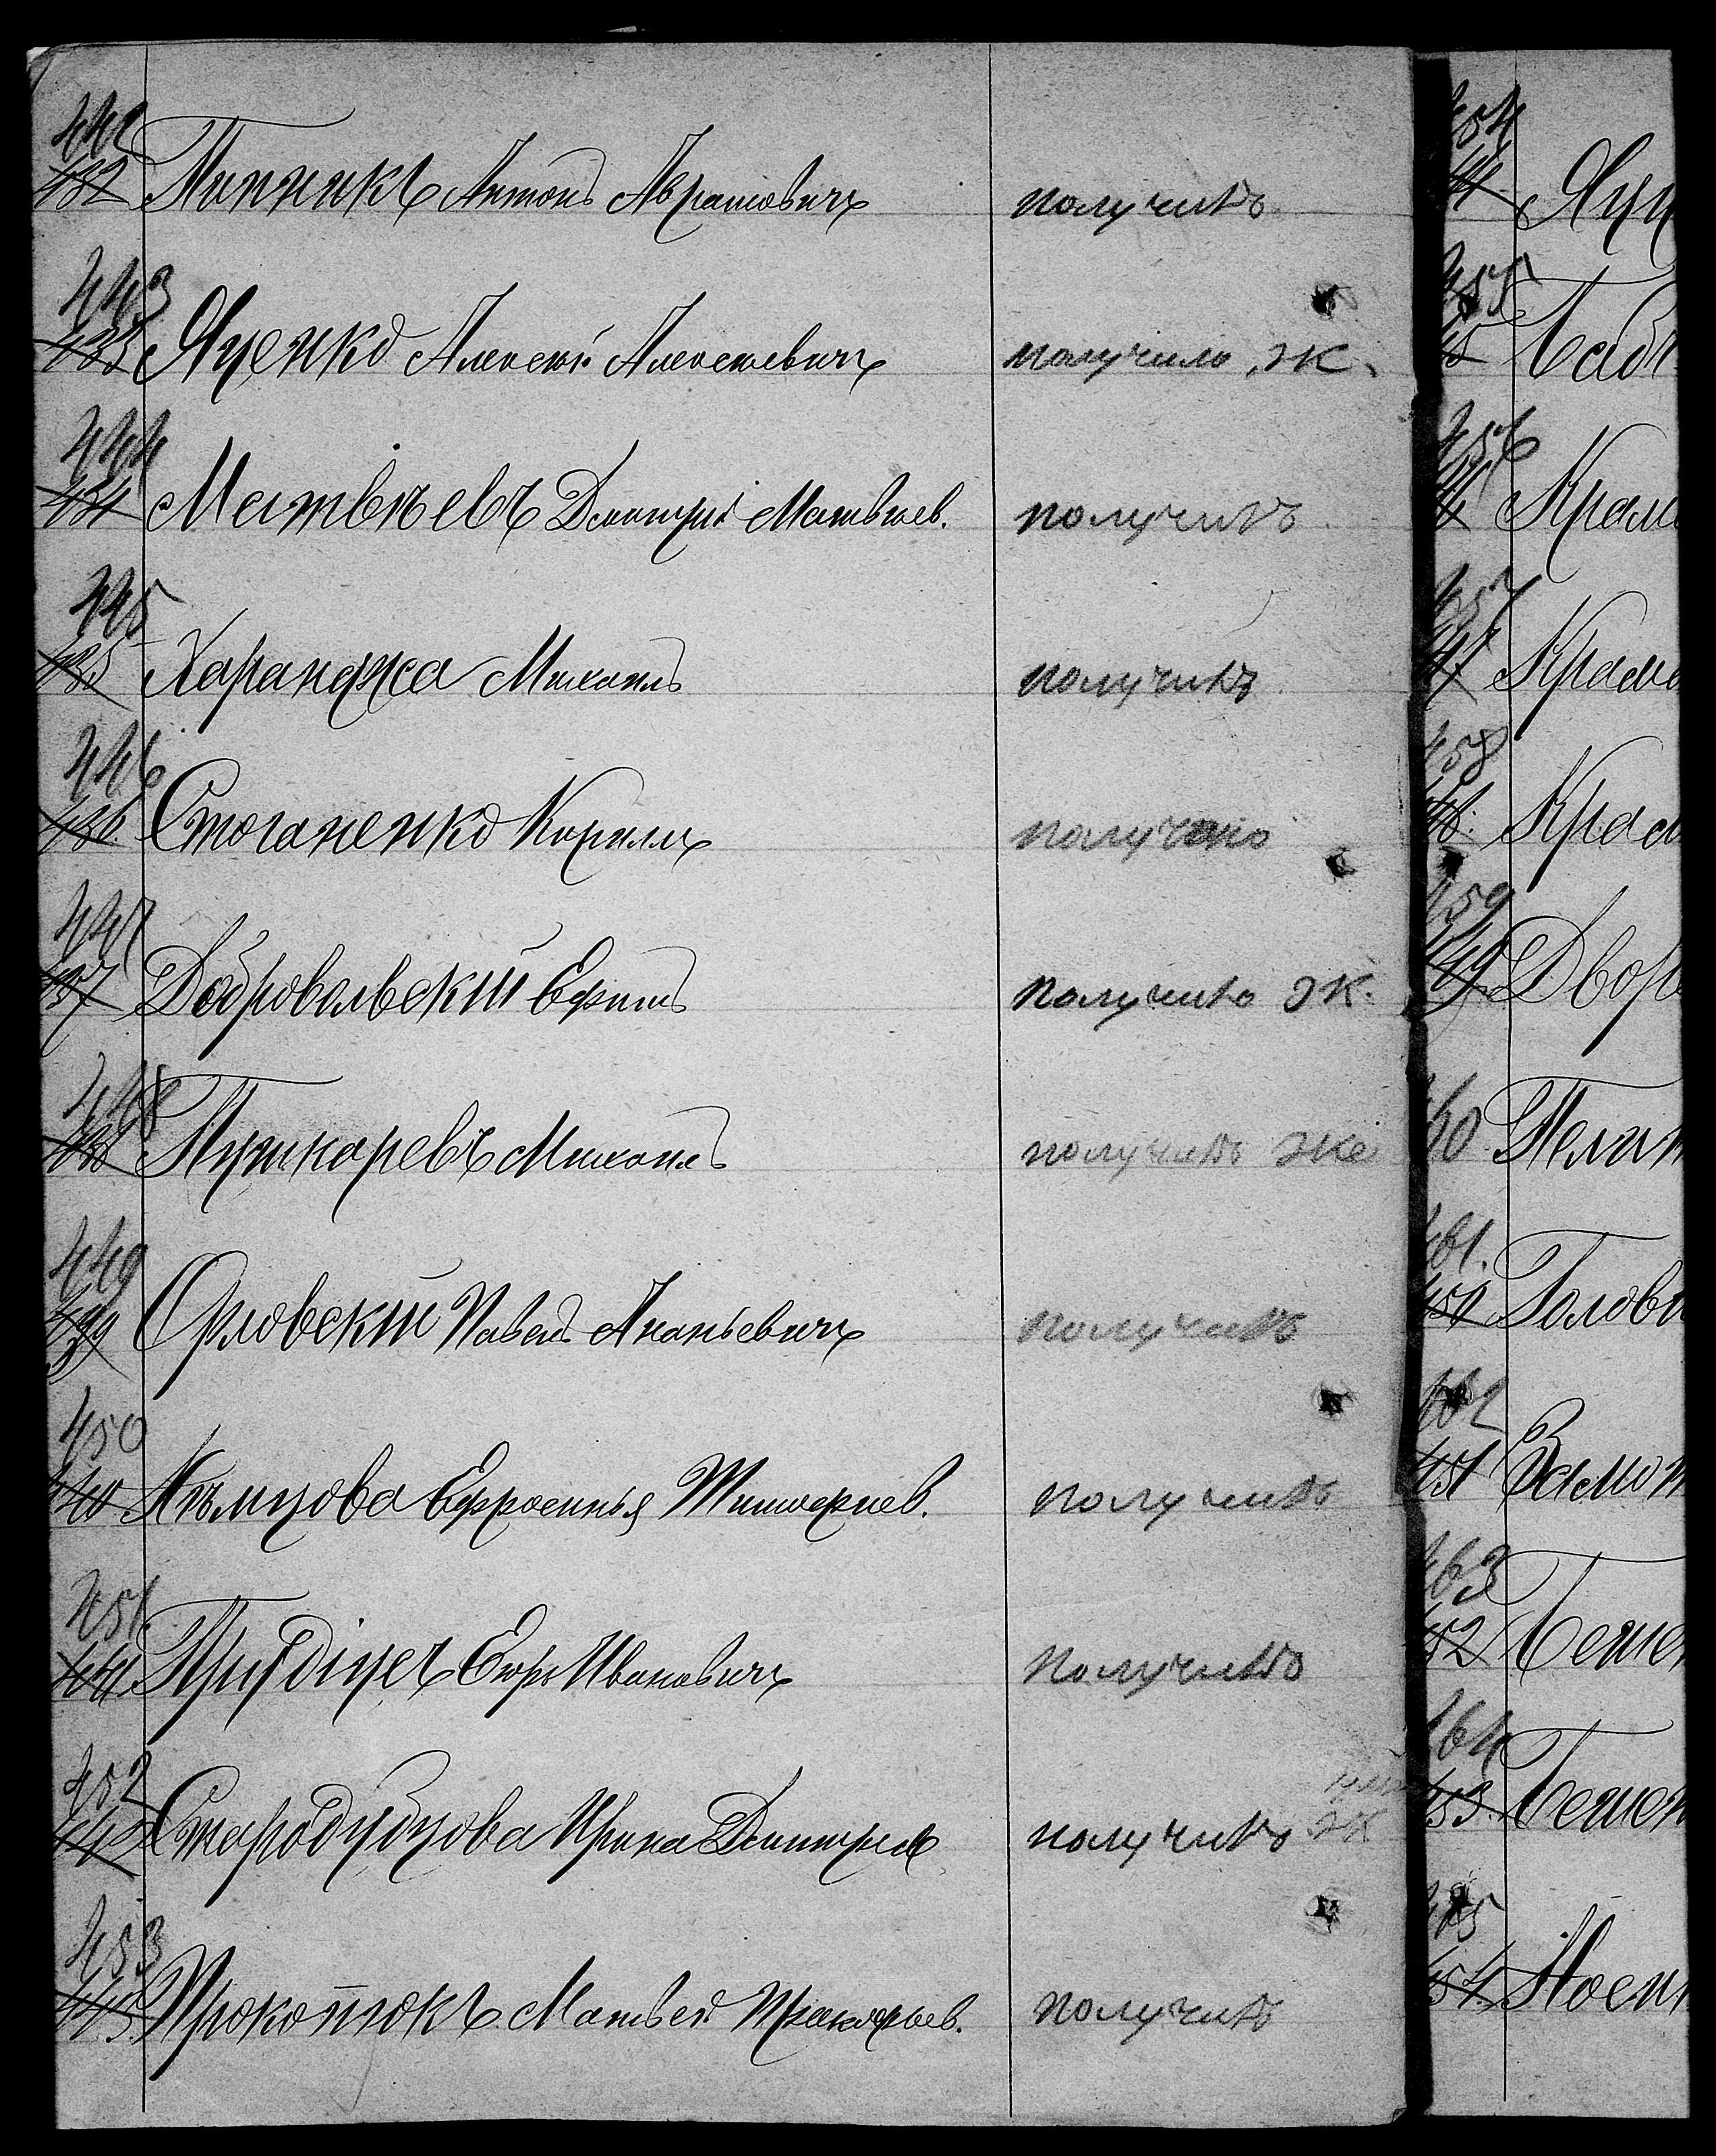 442
432 Пипникъ Антонъ Абрамовичъ получилъ
443
433 Яценко Алексей Алексеевичъ получило ж.
444
434 Матвѣевъ Дмитрій Матвѣев. получилъ
445
435 Харанджа Михаилъ получилъ
446
436. Стоганенко Кириллъ получено
447
437 Добровольскій Ефимъ получило ж.
448
438 Пушкаревъ Михаилъ получилъ же
449
439 Орловскій Павелъ Ананьевичъ получилъ
450
440 Евфросинья Тимофеев. получилъ
451.
441. Иванович получило
452
442 Стародубцова Ирина Дмитріев получилъ ж
453
443. Прокопюкъ Матвей Прокофьев. получилъ
454
44 Яцу
455
45 Бабч
456
46 Крам
457
47 Крам
458
48. Крам
459
449 Двор
460
461.
451 Голов
462
451
463
452
464
453.
465
454.